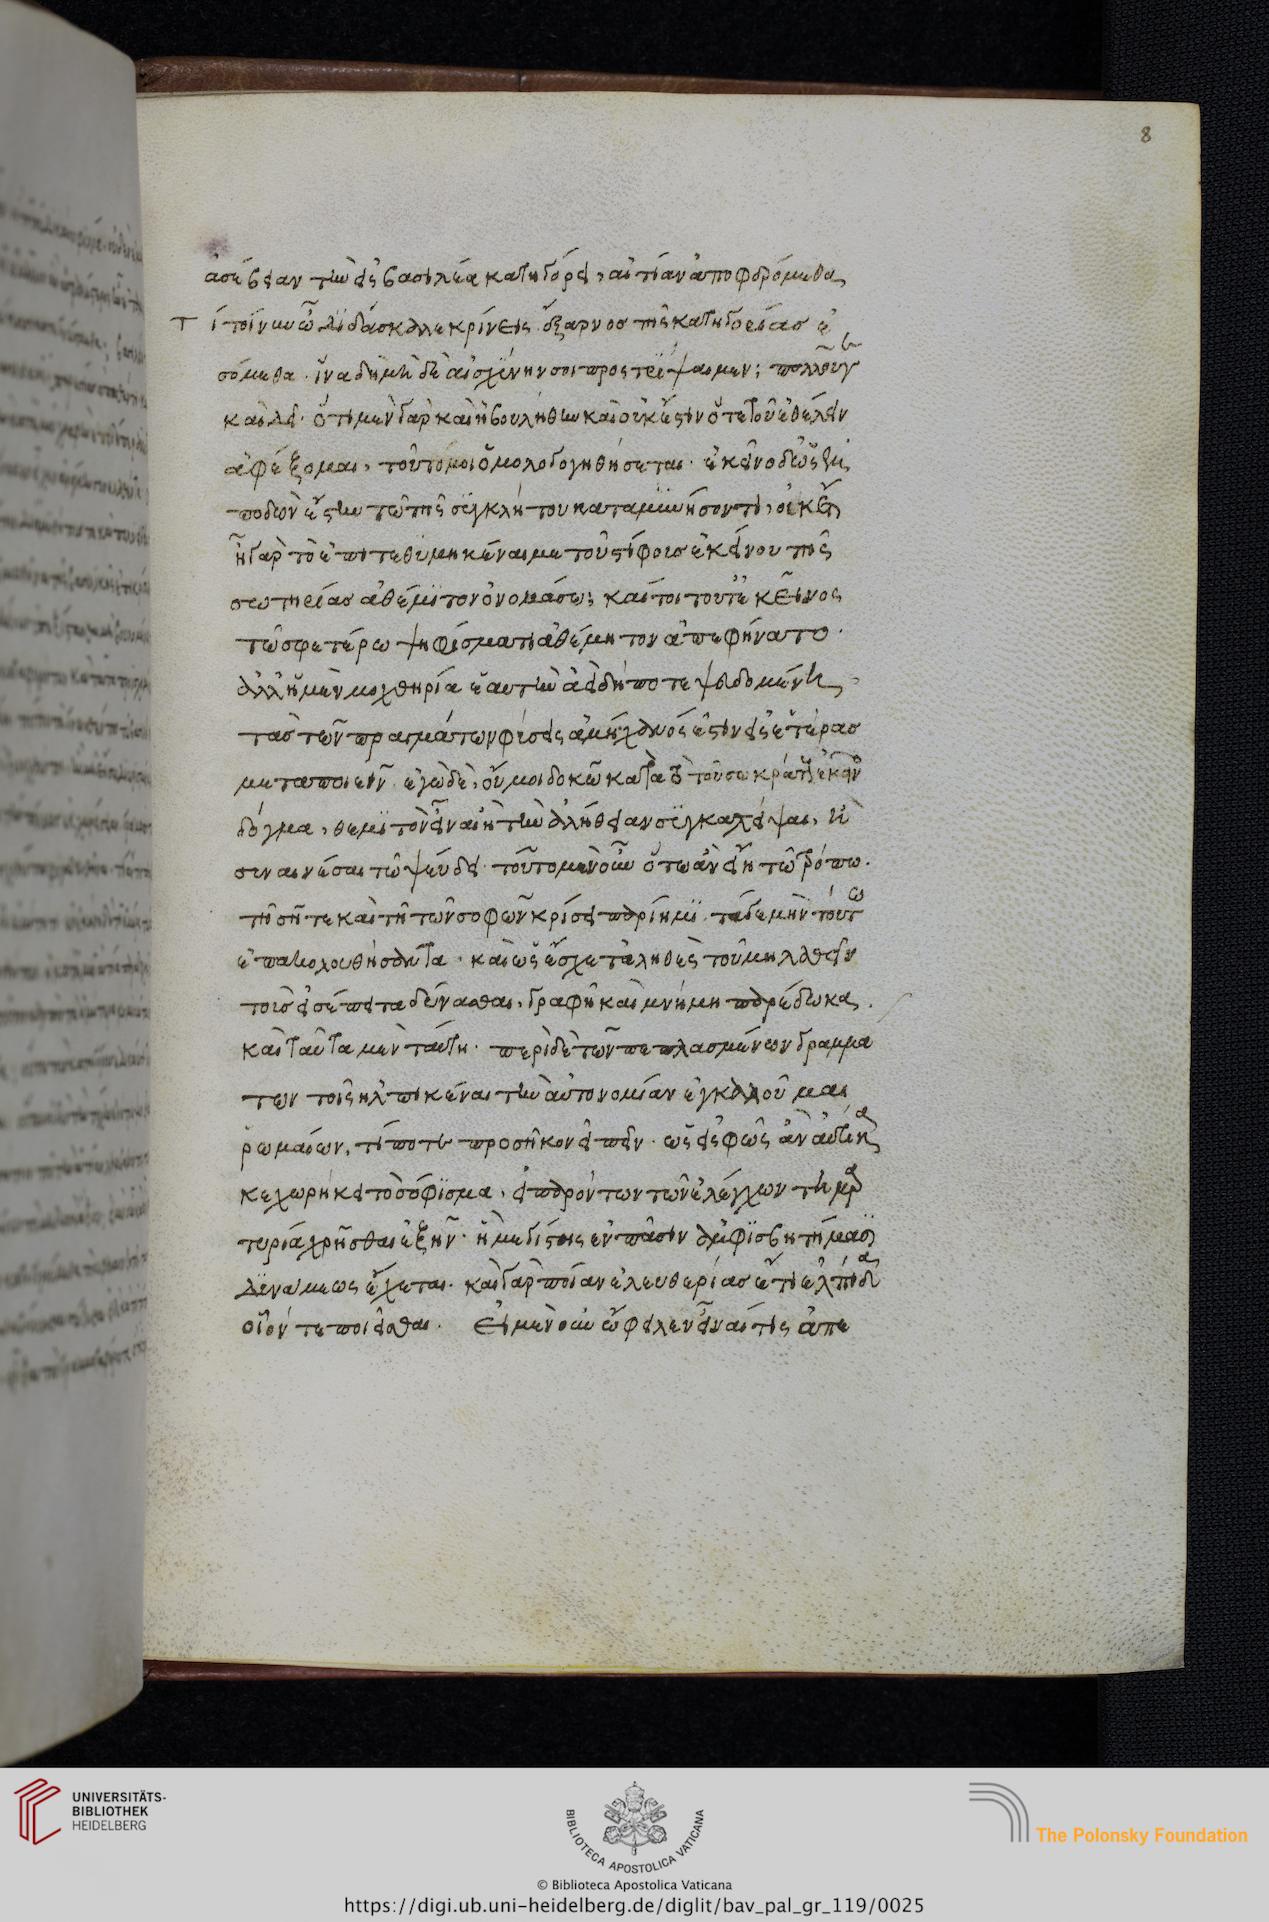 8
ἀσέβειαν τὴν εἰς βασιλέα κατηγορεῖ, αἰτίαν ἀποφερόμεθα,
Τί τοίνυν ὦ διδάσκαλε κρίνεις. ἔξαρνος τῆς κατηγορίας ἐ
σόμεθα. ἵνα δὴ μηδὲ αἰσχύνην σοι προστρίψαιμεν; πολλοῦ γε
καὶ δεῖ. ὅτι μὲν γὰρ καὶ ἠβουλήθην καὶ οὐκ ἔστιν ὅτε τοῦ ἐθέλειν
ἀφέξομαι, τοῦτό μοι ὁμολογηθήσεται. ἐκεῖνο δὲ
ποδὼν ἔστω τῷ τῆς συγκλήτου καταμηνύσοντι, οὐκέτι
ἢ γὰρ τὸ ἐπιτεθυμηκέναι με τοὺς ἐκείνου τῆς
σωτηρίας ἀθέμιτον ὀνομάσω; καίτοι τοῦτ' ἐκεῖνος
τῷ σφετέρῳ ψηφίσματι ἀθέμιτον ἀπεφήνατο.
ἀλλ' ἡ μὲν μοχθηρία ἑαυτὴν ἀεὶ δήποτε ψευδομένη
τὰς τῶν πραγμάτων φύσεις ἀμήχανός ἐστιν εἰς ἑτέρας
μεταποιεῖν. ἐγὼ δὲ, οὔ μοι δοκῶ κατὰ τὸ τοῦ σωκράτους ἐκεῖνο
δόγμα, θεμιτὸν εἶναι ἢ τὴν ἀλήθειαν συγκαλύψαι, ἢ
συναινέσαι τῷ ψεύδει. τοῦτο μὲν οὖν ὅτῳ ἂν εἴη τῷ τρόπῳ.
τῇ σῇ τε καὶ τῇ τῶν σοφῶν κρίσει παρίημι. τάδε μὴν τούτῳ
ἐπακολουθήσαντα. καὶ ὡς ἔσχε τἀληθὲς τοῦ μὴ λαθεῖν
τοῖς εἰσέπειτα δύνασθαι, γραφῇ καὶ μνήμῃ παρέδωκα.
καὶ ταῦτα μὲν ταύτῃ. περὶ δὲ τῶν πεπλασμένων γραμμά
των τοῖς ἠλπικέναι τὴν αὐτονομίαν ἐγκαλοῦμαι
ῥωμαίων, τί ποτε προσῆκον εἰπεῖν. ὡς εἰς φῶς ἂν αὐτίκα
κεχωρήκει τὸ σόφισμα, εἰ παρόντων τῶν ἐλέγχων τῇ μαρ
τυρίᾳ χρῆσθαι ἐξῆν. ἣ μεγίστης ἐν πᾶσιν ἀμφισβητήμασι
δυνάμεως ἔχεται. καὶ γὰρ ποίαν ἐλευθερίας ἔτι ἐλπίδα
οἷόν τε ποιεῖσθαι. Εἰ μὲν οὖν ὤφειλεν εἶναί τις ἀπε
UNIVERSITÄTS-
BIBLIOTHEK
HEIDELBERG
BIBLIOTECA APOSTOLICA VATICANA
The Polonsky Foundation
© Biblioteca Apostolica Vaticana
https://digi.ub.uni-heidelberg.de/diglit/bav_pal_gr_119/0025